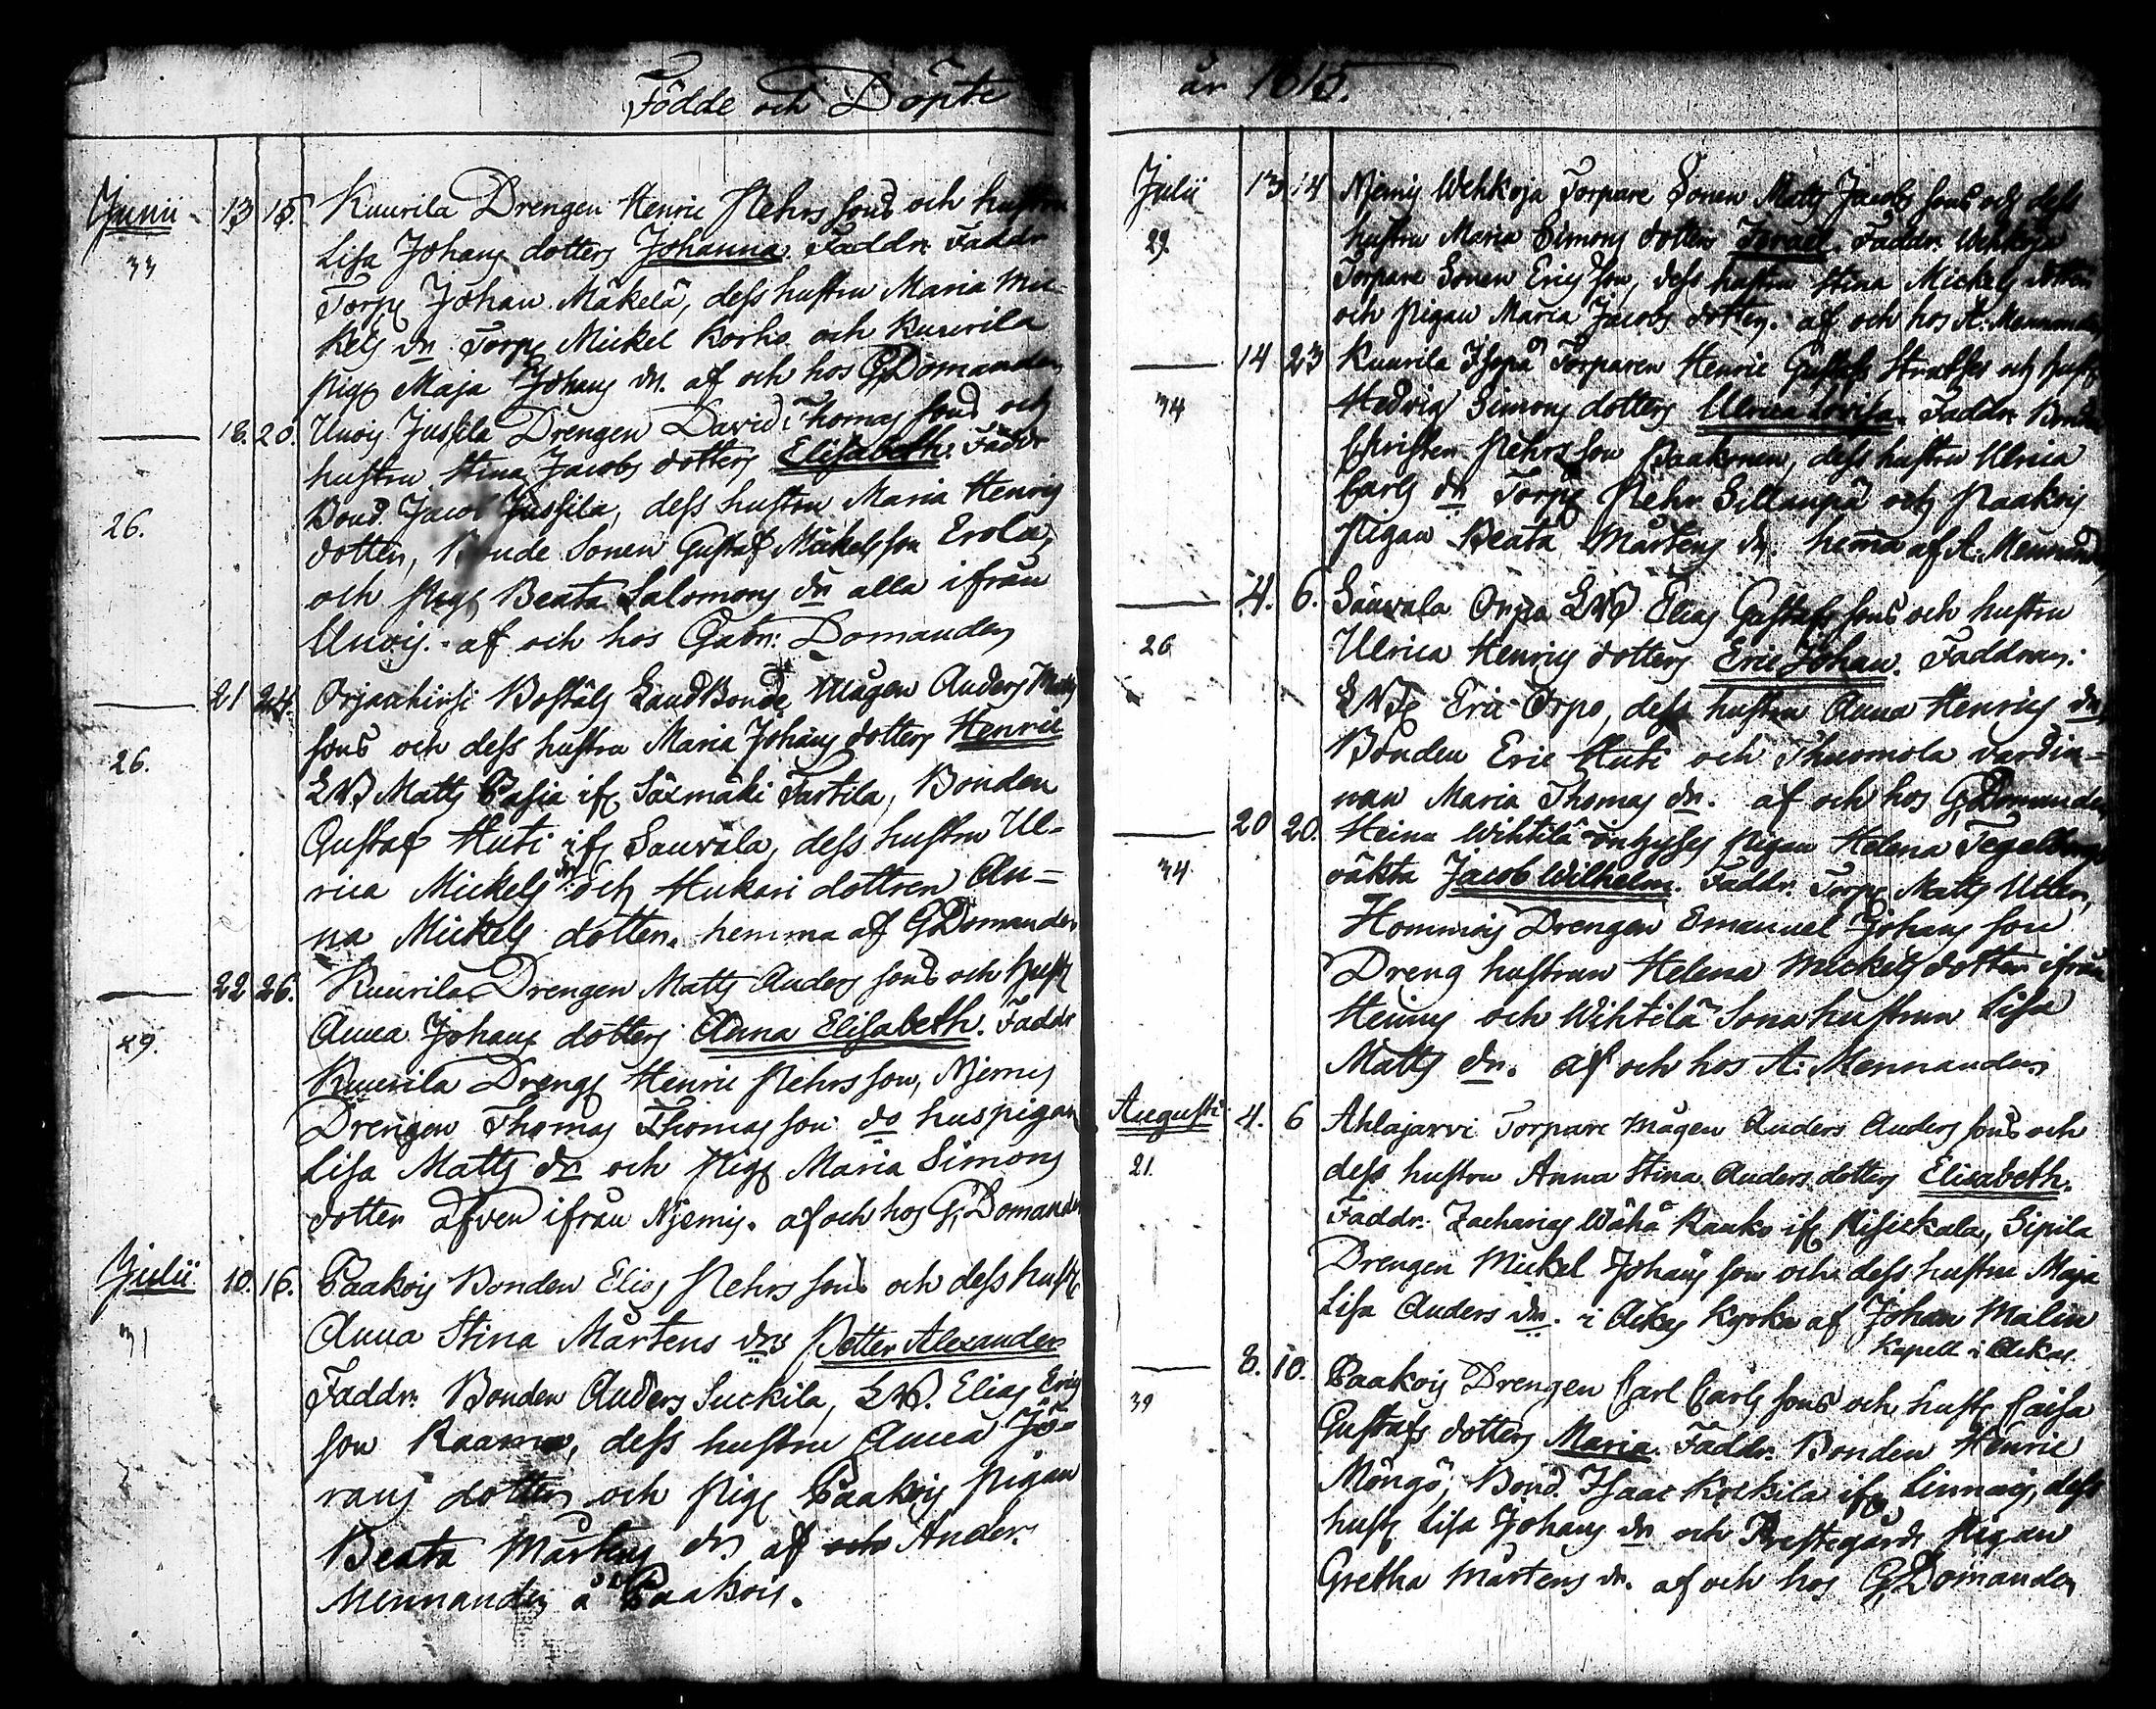 Födde och Döpte
Junii 13 15. Kuurila Drengen Henric Pehrs sons och hustru
33 Lisa Johans dotters Johanna. Faddr. Faddr
Torp. Johan Mäkelä, dess hustru Maria Mic-
kels dr. Torp. Mickel Korho och Kuurila
pig. Maja Johans dr. af och hos G. Domander
18. 20. Unois Jussila Drengen David Thomas sons och
hustru Stina Jacobs dotters Elisabeth. Faddr
26. Bond. Jacob Jussila, dess hustru Maria Henrics
dotter, Bonde Sonen Gustaf Mickelsson Erola,
och Pig. Beata Salomons dr alla ifrån
Unois. af och hos Gabr: Domander
21 24. Boställs Land Bonde Mågen Anders Matts
sons och dess hustru Maria Johans dotters Henric
26. LB Matts Pasia if. Säxmäki Tartila, Bonden
Gustaf Huti if. Sauvala, dess hustru Ul-
rica Mickels dr. och Hukari dottren An-
na Mickels dotter. hemma af G. Domander
22 26. Kuurila Drengen Matts Anders sons och hust.
Anna Johans dotters Anna Elisabeth. Faddr
29. Kuurila Dreng. Henric Pehrsson, Njemis
Drengen Thomas Thomasson do huspigan
Lisa Matts dr och Pig. Maria Simons
dotter äfven ifrån Njemis. af och hos G. Domander
Julii 10. 16. Paakois Bonden Elias Pehrs sons och dess hust.
31 Anna Stina Mårtens drs Petter Alexander
Faddr. Bonden Anders Suckila, LB. Elias Erics
son Raama, dess hustru Anna Jö-
rans dotter och Pig. Paakois Pigan
Beata Mårtens dr. af och Ander.
Mennander å Paakois.
år 1815.
Julii 13 14 Njemis Wehkoja Torpare Sonen Matts Jacobs sons och dess
29. hustru Maria Simons dotters Israel. Faddr. Wehkoja
Torpare Sonen Erics son, dess hustru Stina Mickels dotter
och Pigan Maria Jacobs dotter. af och hos A. Mennander
14 23 Kuurila Torparen Henric Gustafs och hust.
34 Hedvig Simons dotters Ulrica Lovisa. Faddr. Bonden
Christer Pehrsson Paakonen, dess hustru Ulrica
Carls dr Torp. Pehr Sillanpä och Paakois
Pigan Beata Mårtens dr. hema af A. Mennander
4. 6. Sauvala Orpo LB Elias Gustafs sons och hustru
26 Ulrica Henrics dotters Eric Johan. Faddrar.
LB. Eric Orpo, dess hustru Anna Henrics dr,
Bonden Eric Huti och Thuomola värdin-
nan Maria Thomas dr. af och hos G. Domander
20 20. Heinu Wihtilä Pigan Helena Tegelbergs
34 oäkta Jacob Wilhelm. Faddr. Torp. Matts Utter,
Hommois Drengen Emanuel Johans son
Dreng hustrun Helena Mickels dotter ifrån
Heinus och Wihtilä Sona hustrun Lisa
Matts dr. af och hos A. Mennander
Augusti 4. 6 Ahlajarvi Torpare Mågen Anders Anders sons och
21. dess hustru Anna Stina Anders dotters Elisabeth.
Faddr. Zacharias Wähä Raako if. Risickala, Sipila
Drengen Mickel Johans son och dess hustru Maja
Lisa Anders dr. i Ackas Kyrka af Johan Malin
Kapell i Ackas.
8. 10. Paakois Drengen Carl Carls sons och hust. Caisa
39 Gustafs dotters Maria. Faddr. Bonden Henric
Möngö, Bond. Isaac Kockila if. Linnais, dess
hust. Lisa Johans dr och Prestegårds Pigan
Gretha Mårtens dr. af och hos G. Domander